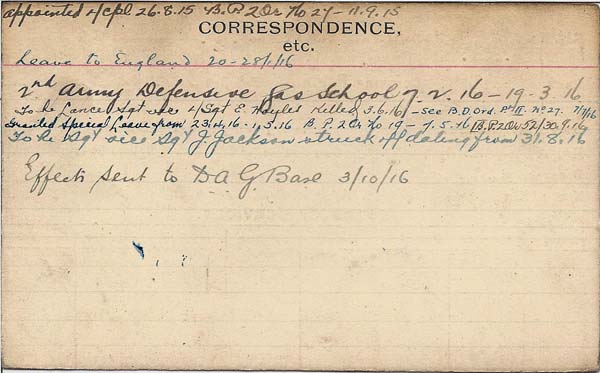 appointed L/Cpl 26.8.15 B.P.2 Or No 27 - 11.9.15
CORRESPONDENCE,
etc.
Leave to England 20-28/1/16
2nd Army Defensive Gas School 7.2.16 - 19.3.16
To be Lance Sgt vice L/Sgt E. Hoyles Killed 3.6.16 - See B.D.Ord. Pt II No 27. 7/7/16
Granted Special Leave from 23.4.16 - 1.5.16 B.P.2 Or No 19 - 7.5.16 B.P.2 Or 52/30.9.16
To be Sgt vice Sgt J. Jackson struck off dating from 31.8.16
Effects sent to D.A.G. Base 3/10/16